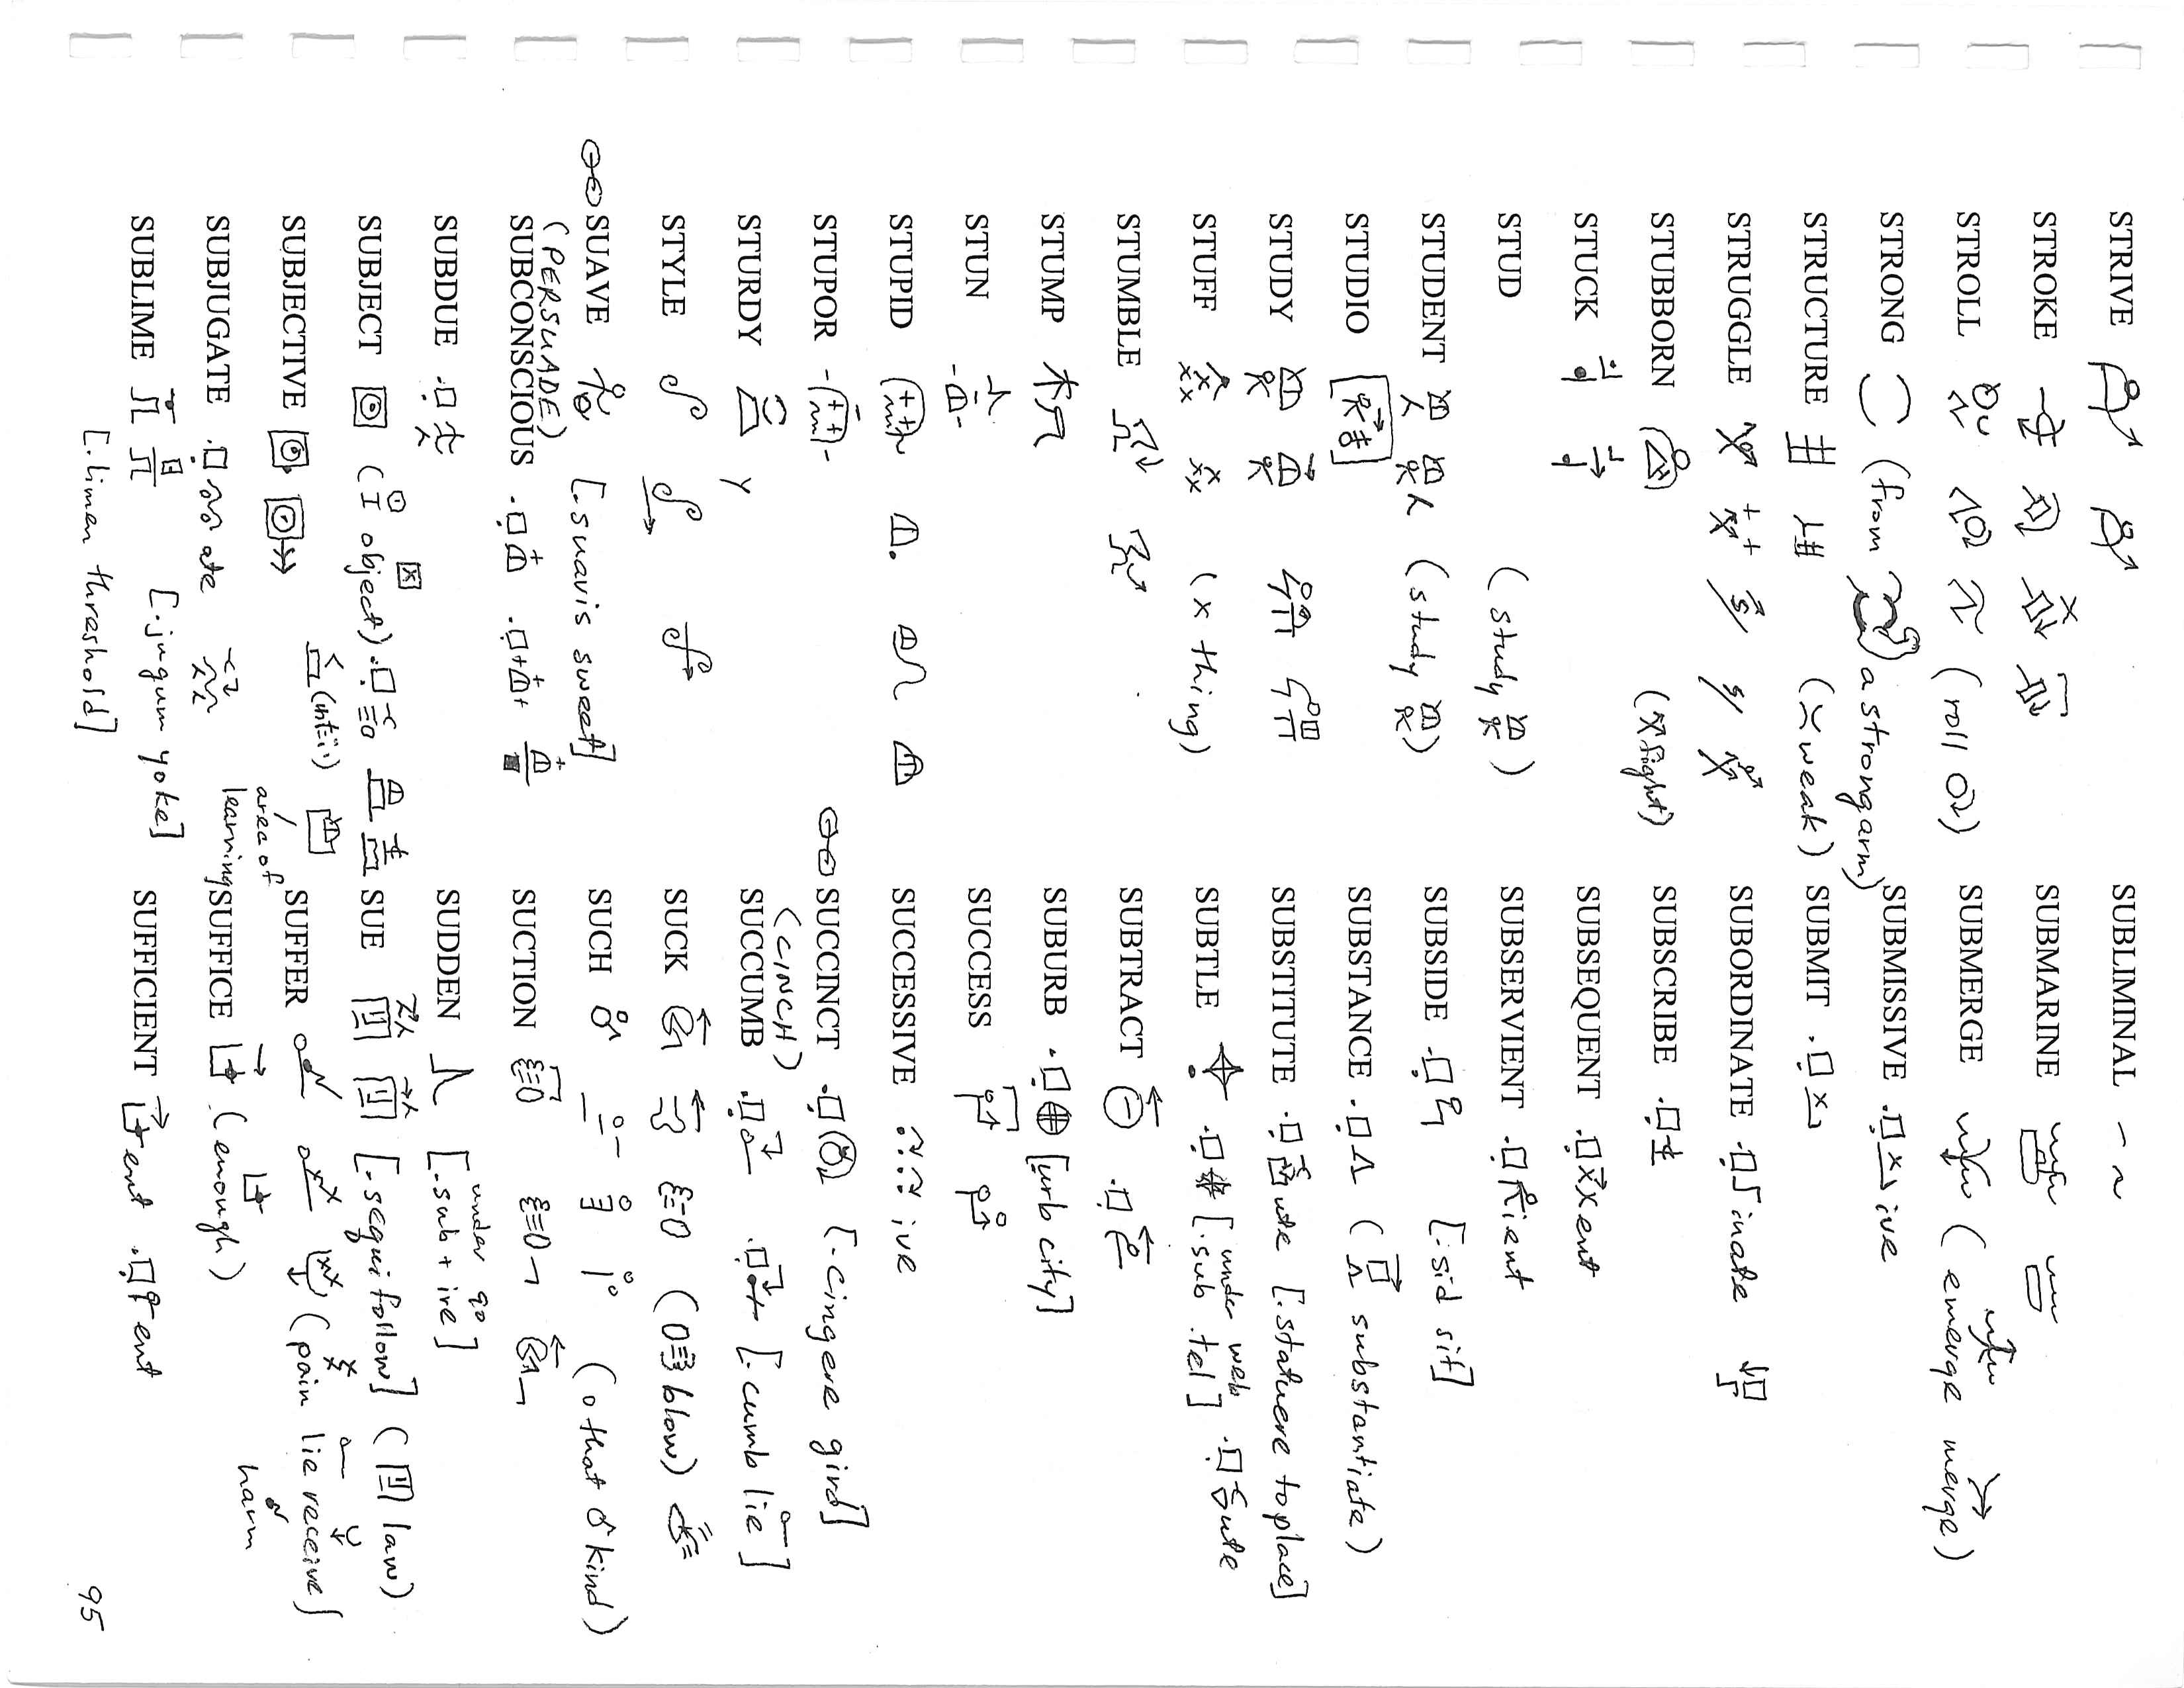 STRIVE
STROKE
STROLL (roll)
STRONG (from a strongarm)
STRUCTURE (weak)
STRUGGLE
STUBBORN (fight)
STUCK
STUD (study)
STUDENT (study)
STUDIO
STUDY
STUFF (x thing)
STUMBLE
STUMP
STUN
STUPID
STUPOR
STURDY
STYLE
SUAVE [.suavis sweet]
(PERSUADE)
SUBCONSCIOUS
SUBDUE
SUBJECT (I object)
SUBJECTIVE area of learning
SUBJUGATE ate [.jugum yoke]
SUBLIME
[.limen threshold]
SUBLIMINAL
SUBMARINE
SUBMERGE (emerge merge)
SUBMISSIVE ive
SUBMIT
SUBORDINATE inate
SUBSCRIBE
SUBSEQUENT ent
SUBSERVIENT ient
SUBSIDE [.sid sit]
SUBSTANCE (substantiate)
SUBSTITUTE ute [.statuere to place]
SUBTLE [.sub under .tel web] ute
SUBTRACT
SUBURB [urb city]
SUCCESS
SUCCESSIVE ive
SUCCINCT [.cingere gird]
(CINCH)
SUCCUMB [.cumb lie]
SUCK (blow)
SUCH (that kind)
SUCTION
SUDDEN [.sub under + ire go]
SUE [.sequi follow] (law)
SUFFER (pain lie receive)
harm
SUFFICE (enough)
SUFFICIENT ent ent
95